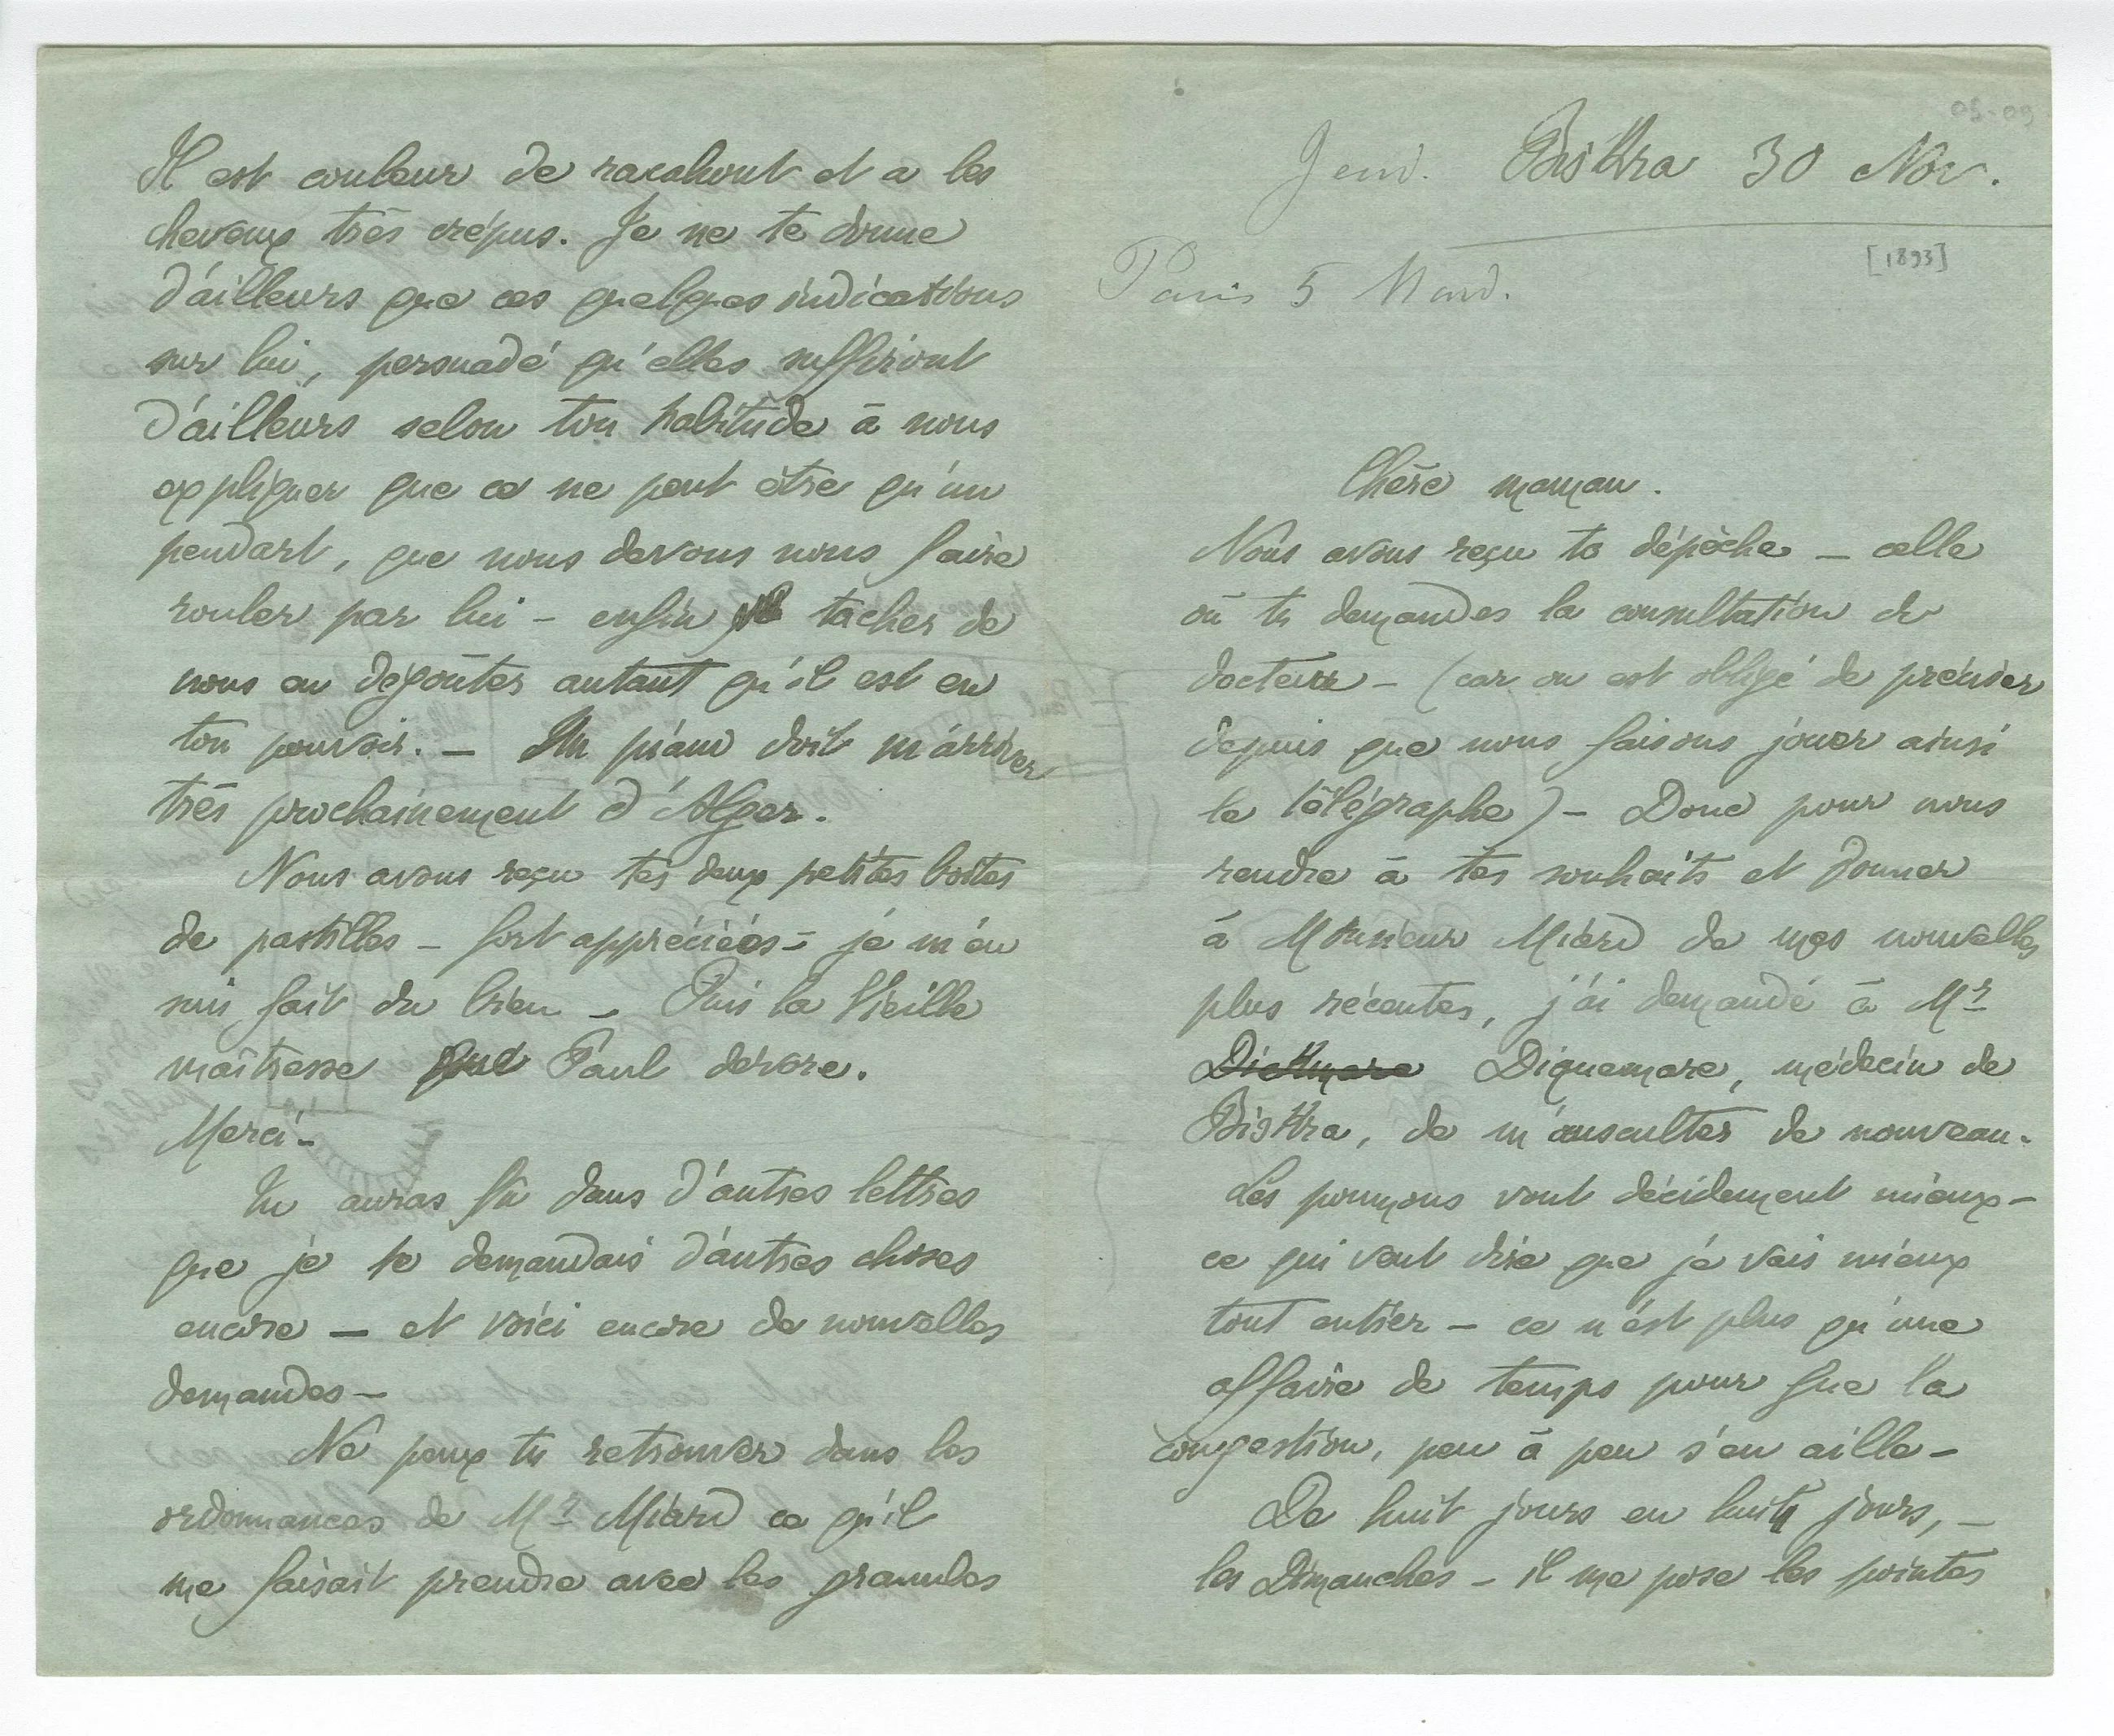 Il est couleur de racahout et a les
cheveux très crépus. Je ne te donne
d'ailleurs que ces quelques indications
sur lui, persuadé qu'elles suffiront
d'ailleurs selon ton habitude à nous
expliquer que ce ne peut être qu'un
pendart, que nous devons nous faire
rouler par lui - enfin tâcher de
nous en dégoûter autant qu'il est en
ton pouvoir. — Un piano doit m'arriver
très prochainement d'Alger.
Nous avons reçu tes deux petites boîtes
de pastilles - fort appréciées - je m'en
suis fait du bien - Puis la Vieille
maîtresse que Paul dévore.
Merci -
Tu auras lu dans d'autres lettres
que je te demandais d'autres choses
encore — et voici encore de nouvelles
demandes -
Ne peux tu retrouver dans les
ordonnances de Mr Miard ce qu'il
me faisait prendre avec les granules
05-09
Jeud. Biskra 30 Nov.
[1893]
Paris 5 Mard.
Chère maman.
Nous avons reçu ta dépêche - celle
où tu demandes la consultation du
docteur - (car on est obligé de préciser
depuis que nous faisons jouer ainsi
le télégraphe) - Donc pour nous
rendre à tes souhaits et donner
à Monsieur Miard de mes nouvelles
plus récentes, j'ai demandé à Mr
Dickmare Diquemare, médecin de
Biskra, de m'ausculter de nouveau.
Les poumons vont décidément mieux -
ce qui veut dire que je vais mieux
tout entier - ce n'est plus qu'une
affaire de temps pour que la
congestion, peu à peu s'en aille -
De huit jours en huit jours, -
les Dimanches - il me pose les pointes